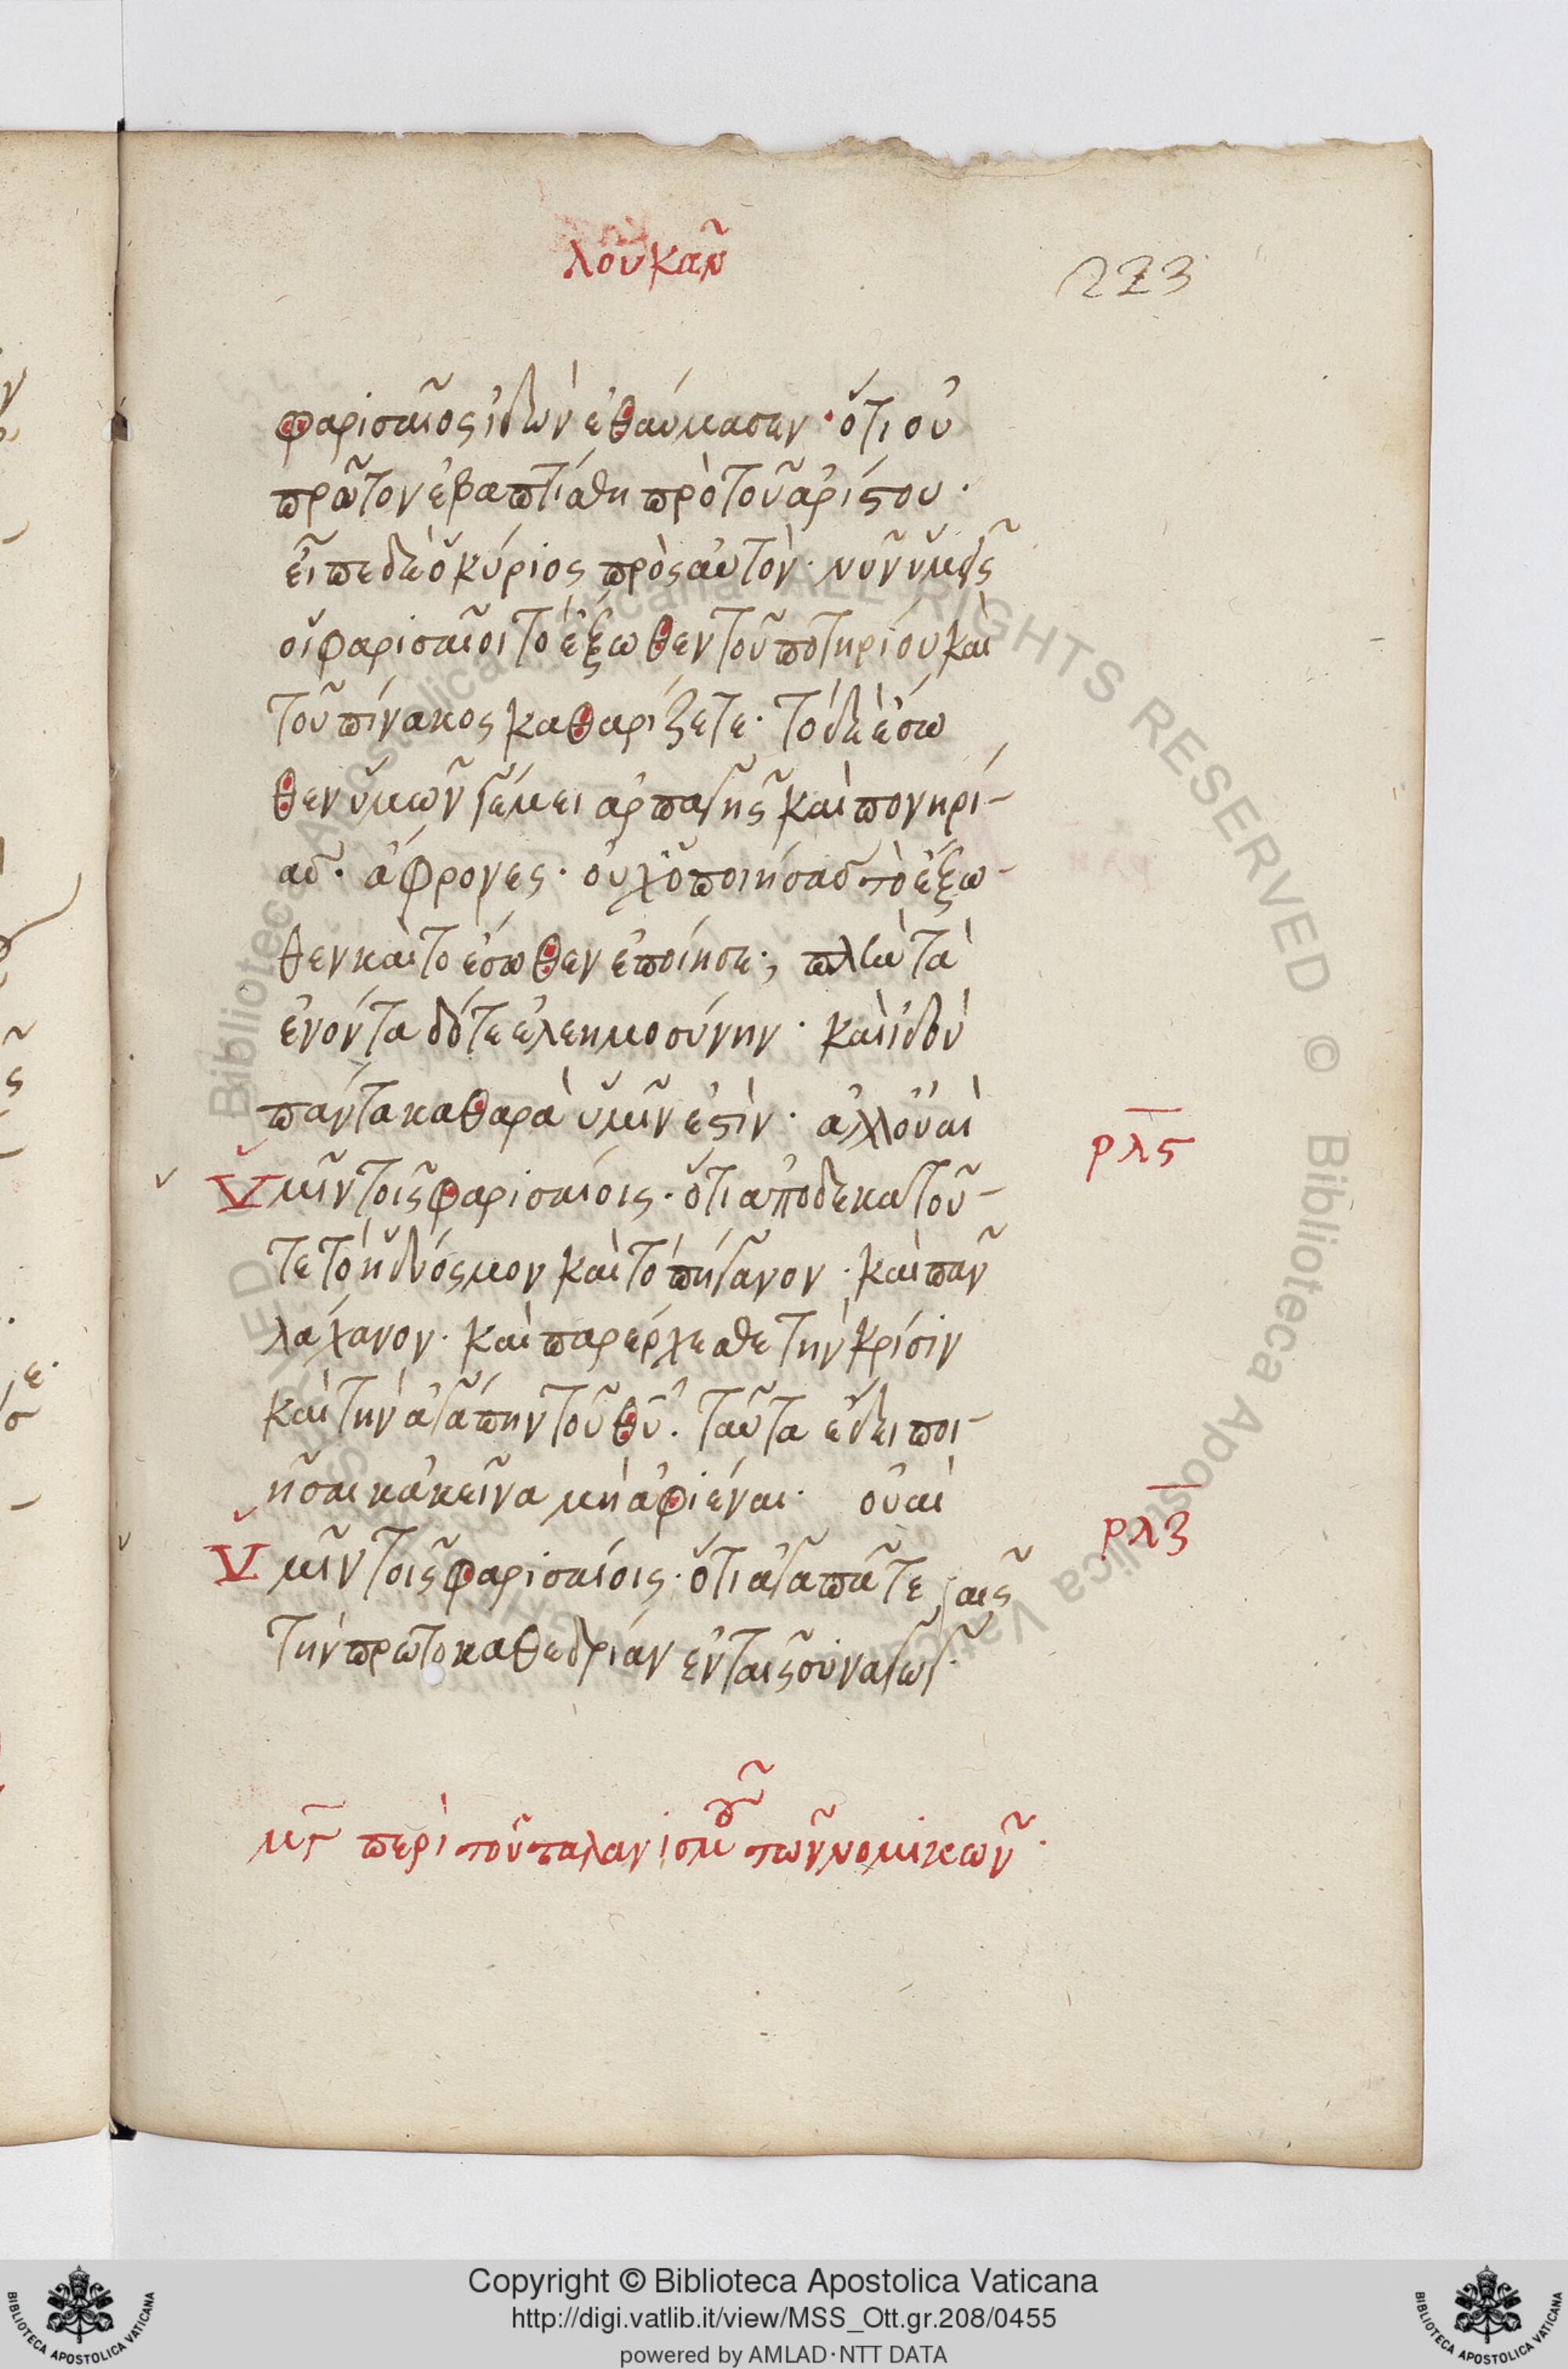 λουκᾶν
223
φαρισαῖος ἰδὼν ἐθαύμασεν· ὅτι οὐ
πρῶτον ἐβαπτίσθη πρὸ τοῦ ἀρίστου·
εἶπε δὲ ὁ κύριος πρὸς αὐτόν· νῦν ὑμεῖς
οἱ φαρισαῖοι τὸ ἔξωθεν τοῦ ποτηρίου καὶ
τοῦ πίνακος καθαρίζετε· τὸ δὲ ἔσω
θεν ὑμῶν γέμει ἁρπαγῆς καὶ πονηρί-
ας· ἄφρονες· οὐχ ὁ ποιήσας τὸ ἔξω-
θεν καὶ τὸ ἔσωθεν ἐποίησε; πλὴν τὰ
ἐνόντα δότε ἐλεημοσύνην· καὶ ἰδοὺ
πάντα καθαρὰ ὑμῖν ἐστὶν· ἀλλ οὐαὶ
ρλς
ὑμῖν τοῖς φαρισαίοις· ὅτι ἀποδεκατοῦ-
τε τὸ ἡδύοσμον καὶ τὸ πήγανον· καὶ πᾶν
λάχανον· καὶ παρέρχεσθε τὴν κρίσιν
καὶ τὴν ἀγάπην τοῦ θυ· ταῦτα ἔδει ποι-
ῆσαι κἀκεῖνα μὴ ἀφιέναι· οὐαὶ
ρλζ
ὑμῖν τοῖς φαρισαίοις· ὅτι ἀγαπᾶτε
τὴν πρωτοκαθεδρίαν ἐν ταῖς συναγωγαῖς
μς περὶ τοῦ ταλανισμοῦ τῶν νομικῶν·
Copyright © Biblioteca Apostolica Vaticana
http://digi.vatlib.it/view/MSS_Ott.gr.208/0455
powered by AMLAD·NTT DATA
BIBLIOTECA APOSTOLICA VATICANA
BIBLIOTECA APOSTOLICA VATICANA